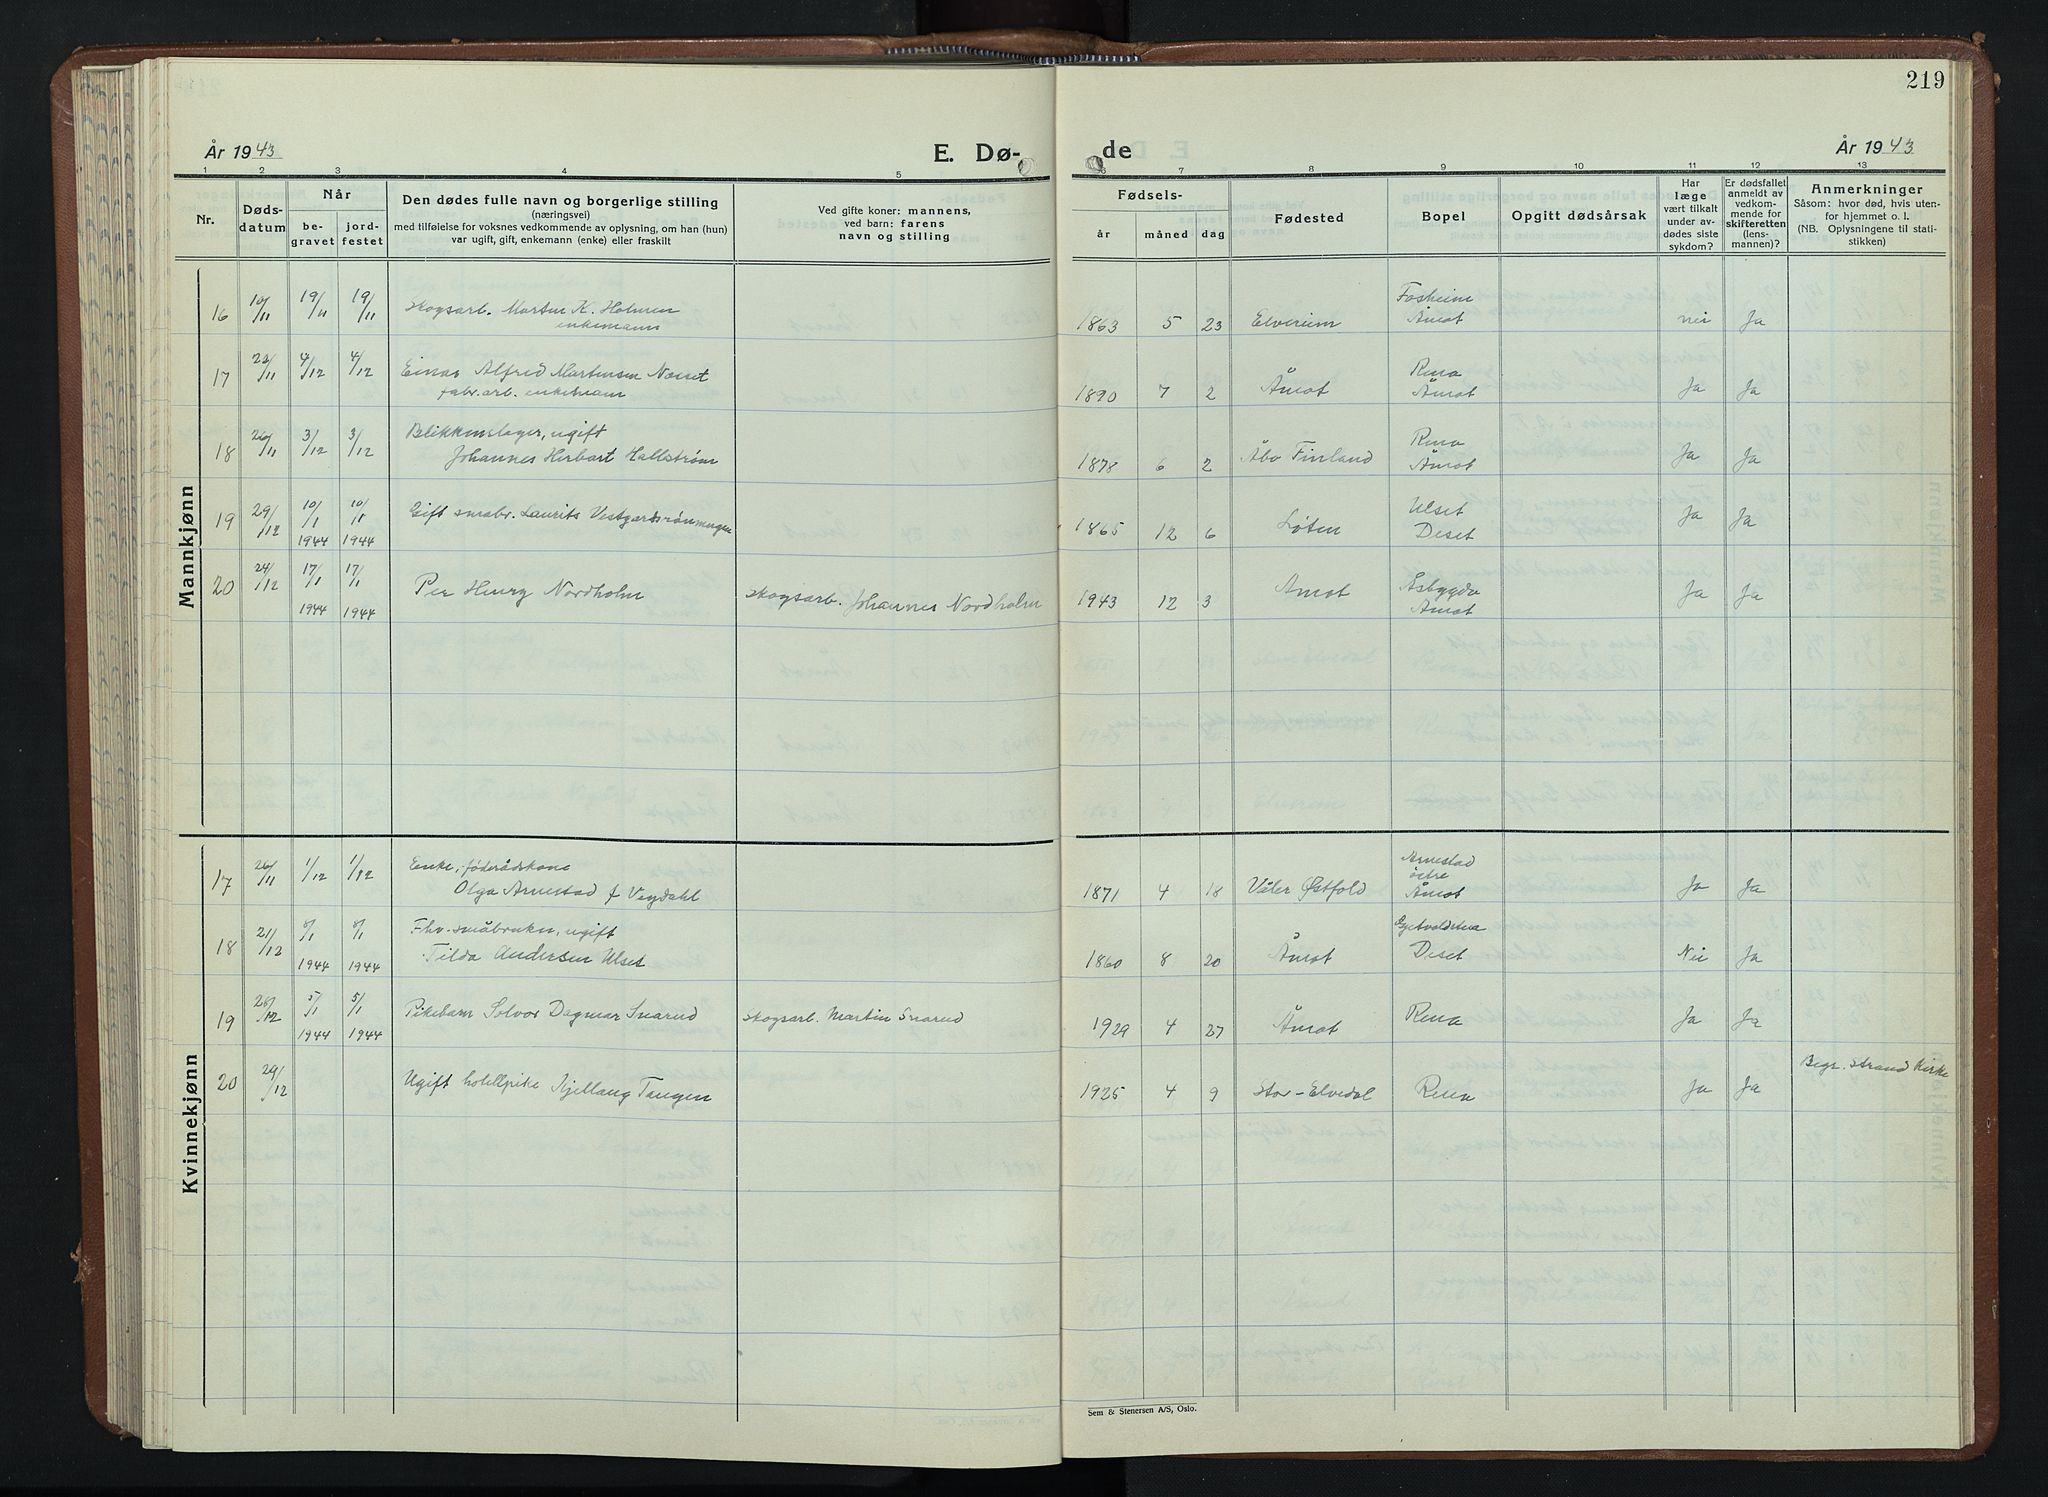 219
År 1943
E. Dø-
de
År 1943
1 2 3 4 5 6 7 8 9 10 11 12 13
Nr.
Døds-
datum
Når
be-
gravet
jord-
festet
Den dødes fulle navn og borgerlige stilling
(næringsvei)
med tilføielse for voksnes vedkommende av oplysning, om han (hun)
var ugift, gift, enkemann (enke) eller fraskilt
Ved gifte koner: mannens,
ved barn: farens
navn og stilling
Fødsels-
år måned dag
Fødested
Bopel
Opgitt dødsårsak
Har
læge
vært tilkalt
under av-
dødes siste
sykdom?
Er dødsfallet
anmeldt av
vedkom-
mende for
skifteretten
(lens-
mannen)?
Anmerkninger
Såsom: hvor død, hvis uten-
for hjemmet o. l.
(NB. Oplysningene til stati-
stikken)
Mannkjønn
16 10/11 19/11 19/11 Skogsarb. Martin K. Holmen
enkemann
1863 5 23 Elverum Fosheim
Åmot nei Ja
17 22/11 4/12 4/12 Einar Alfred Martinsen Næset
fabr.arb. enkemann
1890 7 2 Åmot Rena
Åmot Ja Ja
18 26/11 3/12 3/12 Blikkenslager, ugift
Johannes Herbart Hallstrøm
1878 6 2 Åbo Finland Rena
Åmot Ja Ja
19 29/12 10/1 1944 10/1 1944 Gift småbr. Laurits Vestgardsrønningen
1865 12 6 Løten Ulset
Deset Ja Ja
20 24/12 17/1 1944 17/1 1944 Per Henry Nordholm skogsarb. Johannes Nordholm
1943 12 3 Åmot Åsbygda
Åmot Ja Ja
Kvinnekjønn
17 26/11 1/12 1/12 Enke, føderådskone
Olga Arnestad f Vegdahl
1871 4 18 Våler Østfold Arnestad
østre
Åmot Ja Ja
18 21/12 8/1 1944 8/1 1944 Fhv. småbruker, ugift
Tilda Andersen Ulset
1860 8 20 Åmot Deset Nei Ja
19 5/1 1944 5/1 1944 Pikebarn Solvor Dagmar Snarud skogsarb. Martin Snarud
1929 4 27 Åmot Rena Ja Ja
20 29/12 Ugift hotellpike Kjellaug Tangen
1925 4 9 Stor-Elvedal Rena Ja Ja Begr. Strand Kirke
Sem & Stenersen A/S, Oslo.